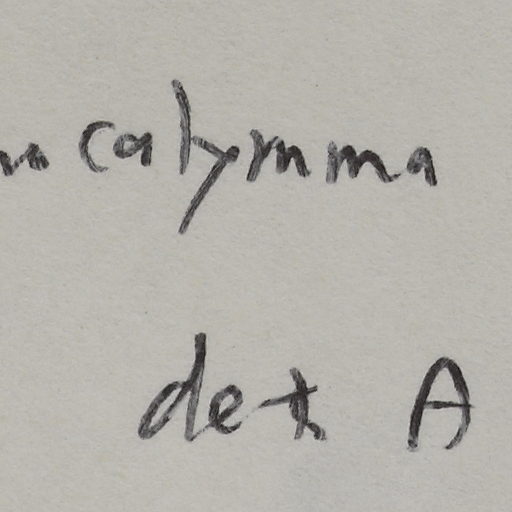 calymma
det A